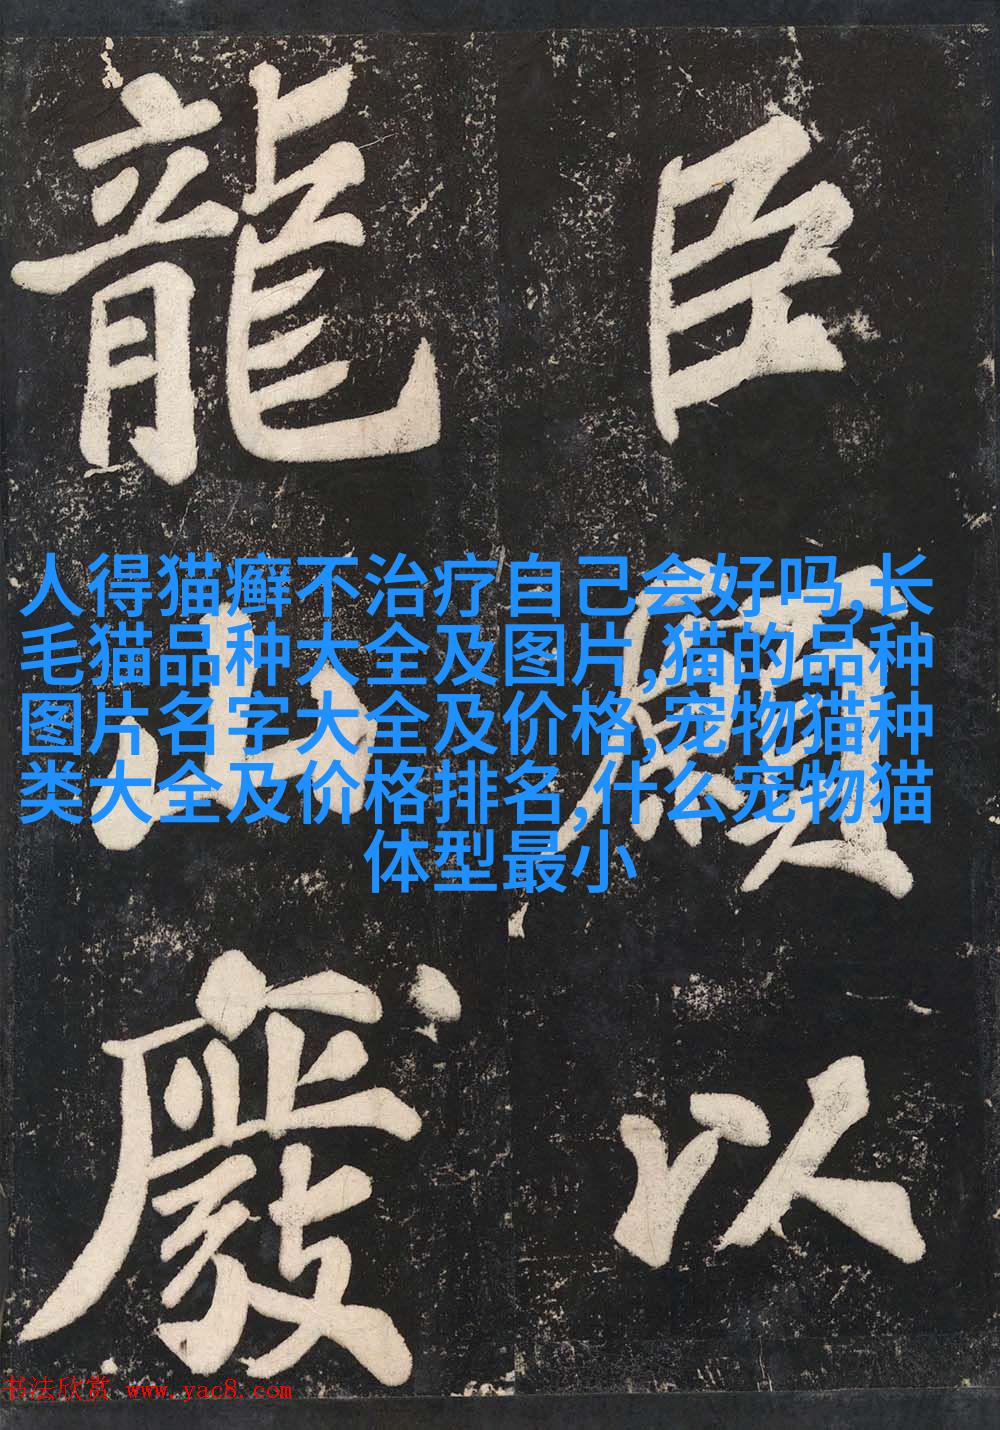 臣願以
龍山廢
人得猫癣不治疗自己会好吗,长
毛猫品种大全及图片,猫的品种
图片名字大全及价格,宠物猫种
类大全及价格排名,什么宠物猫
体型最小
书法欣赏 www.yac8.com